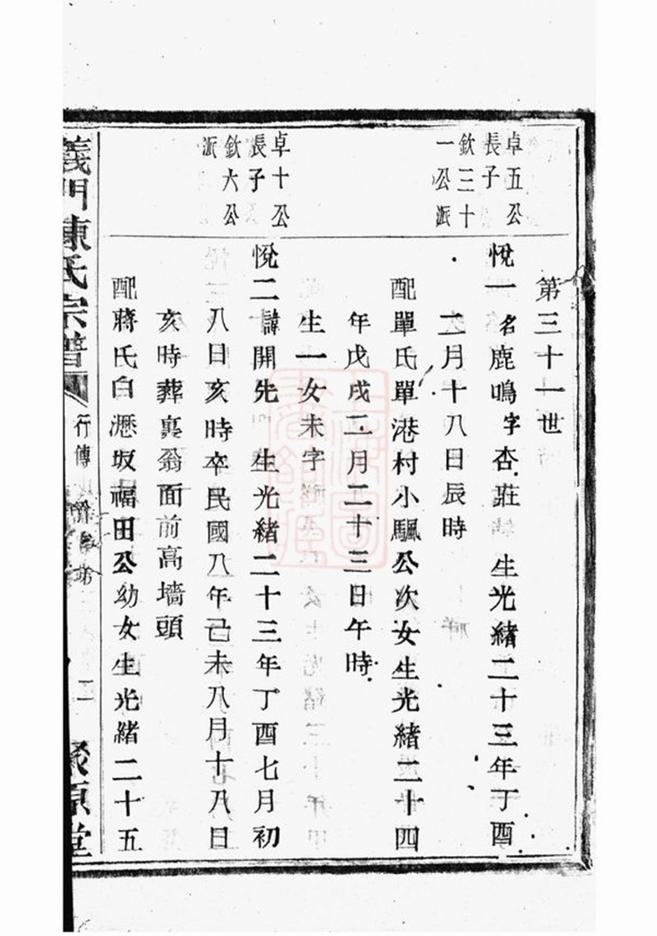 第三十一世
卓五公
長子
欽三十
一公派
悅一名鹿鳴字杏莊 生光緒二十三年丁酉
二月十八日辰時
配單氏單港村小颿公次女生光緒二十四
年戊戌二月二十三日午時
生一女未字
卓十公
長子
欽六公
派
悅二諱開先 生光緒二十三年丁酉七月初
八日亥時卒民國八年己未八月十八日
亥時葬裏翁面前高墻頭
配蔣氏白瀝坂福田公幼女生光緒二十五
義門陳氏宗譜
行傳
二
聚原堂